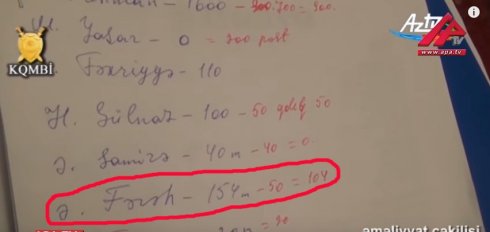 1000 - 300.700 = 300.
H. Yaşar - 0 = 200 post
Fəriyyə - 110
H. Gülnaz - 100 - 50 qəlıq 50
Ə. Samirə - 40 m - 40 = 0.
Ə. Fərəh - 154 m - 50 = 104
= 90
KQMBİ
AzTV
APA TV
www.apa.tv
əməliyyat çəkilişi